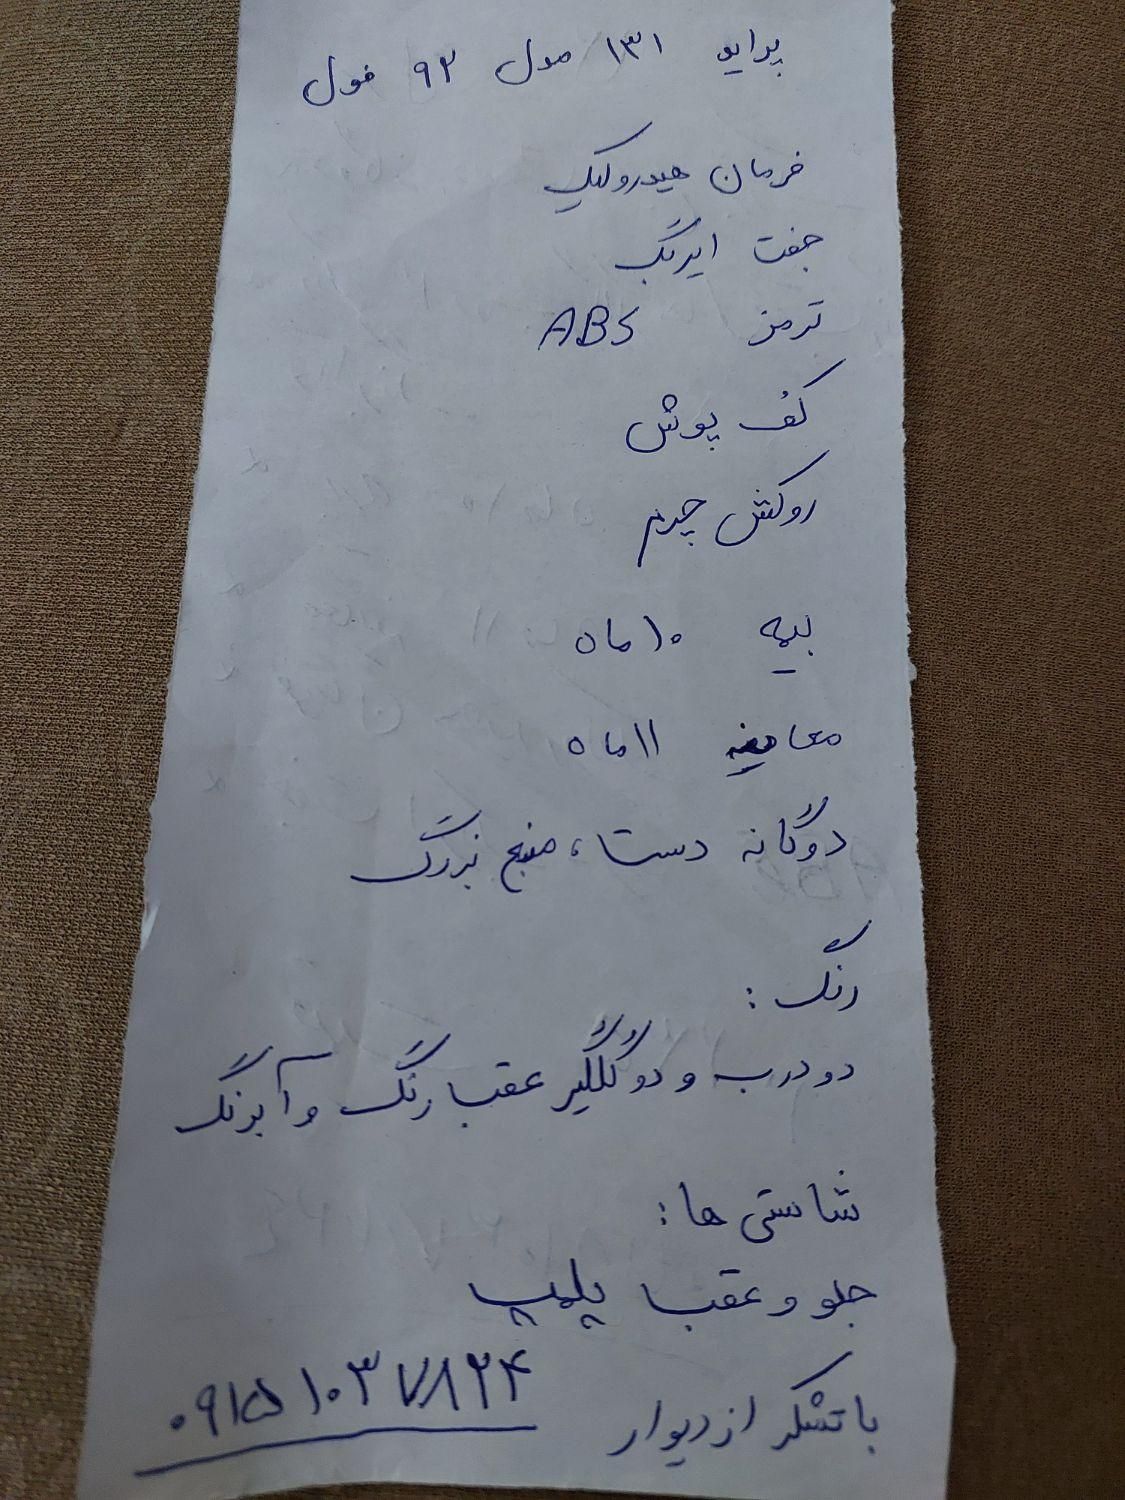 پراید ۱۳۱ مدل ۹۲ فول
فرمان هیدرولیک
جفت ایربگ
ترمز ABS
کف پوش
روکش چرم
بیمه ۱۰ ماه
معاینه ۱۱ ماه
دوگانه دستی، منبع بزرگ
رنگ:
دو درب و دو گلگیر عقب رنگ و آبرنگ
شاستی ها:
جلو و عقب پلمپ
با تشکر از دیوار ۰۹۱۵۱۰۳۷۸۲۴